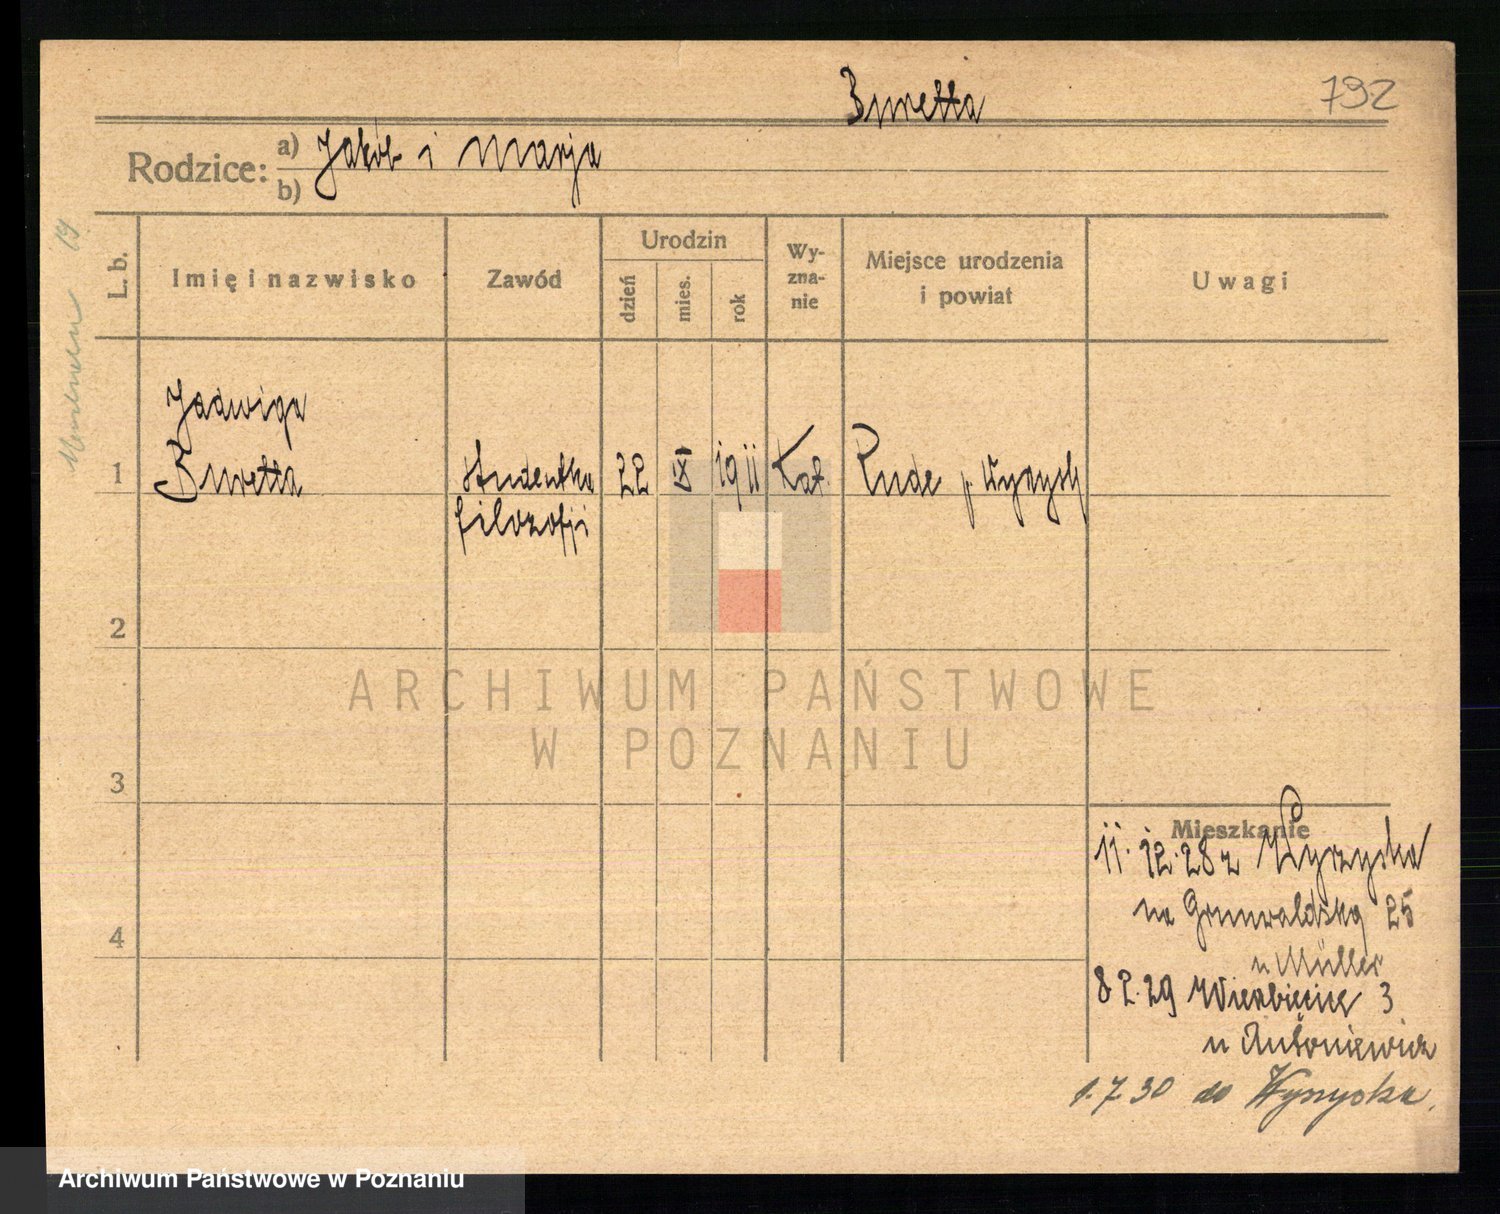 Buretta
792
Rodzice: a) Jakób i Marja
b)
L. b.
Imię i nazwisko
Zawód
Urodzin
dzień
mies.
rok
Wy-
zna-
nie
Miejsce urodzenia
i powiat
Uwagi
19
1
Jadwiga
Buretta
studentka
filozofji
22
IX
1911
Kat.
Rude p. Wyrzysk
2
3
4
Mieszkanie
11. 12. 28 z Wyrzyska
na Grunwaldską 25
u Müller
8 2. 29 Wierzbięcice 3
u Antoniewicz
1.7.30 do Wyrzyska.
ARCHIWUM PAŃSTWOWE
W POZNANIU
Archiwum Państwowe w Poznaniu